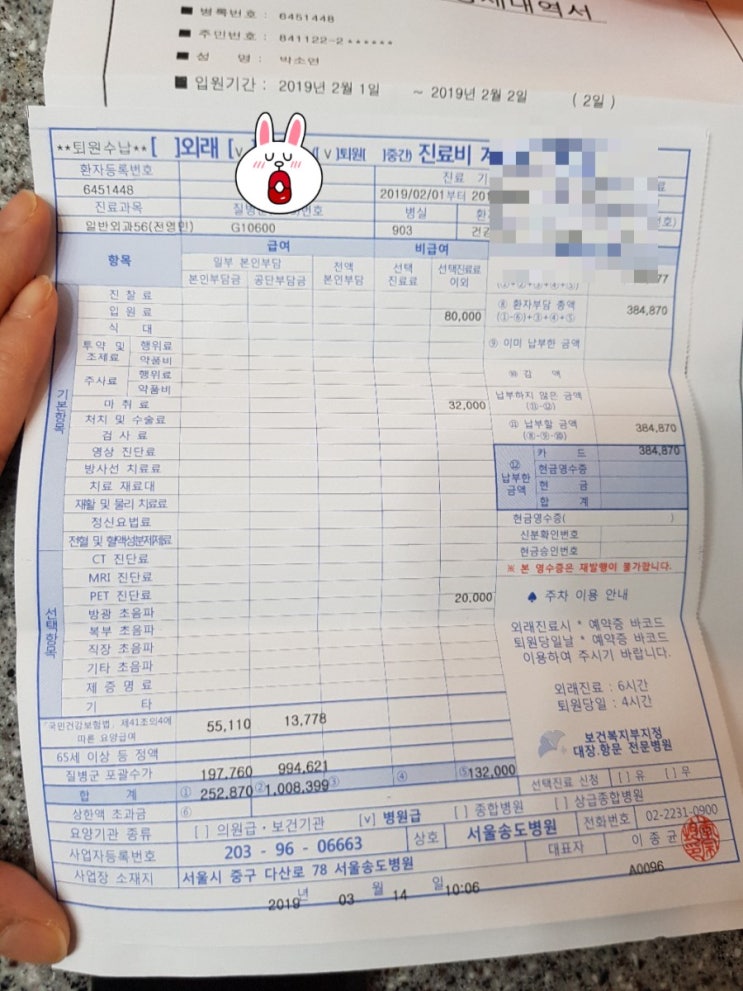 세내역서
■ 병록번호 : 6451448
■ 주민번호 : 841122-2******
■ 성 명 : 박소연
■ 입원기간 : 2019년 2월 1일 ~ 2019년 2월 2일 ( 2일 )
**퇴원수납** [ ]외래 [v ]퇴원[ ]중간) 진료비 계
환자등록번호 진료 기
6451448 2019/02/01부터 201
진료과목 번호 병실 환
일반외과56(전영민) G10600 903 건강
항목 급여 비급여
일부 본인부담 전액 본인부담 선택 진료료 선택진료료 이외
본인부담금 공단부담금
기본항목
진찰료
입원료 80,000
식 대
투약 및 조제료 행위료
약품비
주사료 행위료
약품비
마취료 32,000
처치 및 수술료
검사료
영상 진단료
방사선 치료료
치료 재료대
재활 및 물리 치료료
정신요법료
전혈 및 혈액성분제제료
선택항목
CT 진단료
MRI 진단료
PET 진단료 20,000
방광 초음파
복부 초음파
직장 초음파
기타 초음파
제증명료
기 타
「국민건강보험법」 제41조의4에 따른 요양급여 55,110 13,778
65세 이상 등 정액
질병군 포괄수가 197,760 994,621 132,000
합 계 ① 252,870 ② 1,008,399 ③ ④ ⑤
상한액 초과금 ⑥
요양기관 종류 [ ] 의원급·보건기관 [v] 병원급 [ ] 종합병원 [ ] 상급종합병원
사업자등록번호 203 - 96 - 06663 상호 서울송도병원 전화번호 02-2231-0900
사업장 소재지 서울시 중구 다산로 78 서울송도병원 대표자 이종균
2019년 03월 14일 10:06 A0096
(①+②+③+④+⑤)
⑧ 환자부담 총액 384,870
(①-⑥)+③+④+⑤
⑨ 이미 납부한 금액
⑩ 감 액
납부하지 않은 금액
(⑪-⑫)
⑪ 납부할 금액 384,870
(⑧-⑨-⑩)
⑫ 납부한 금액
카 드 384,870
현금영수증
현 금
합 계
현금영수증( )
신분확인번호
현금승인번호
※ 본 영수증은 재발행이 불가합니다.
♠ 주차 이용 안내
외래진료시 * 예약증 바코드
퇴원당일날 * 예약증 바코드
이용하여 주시기 바랍니다.
외래진료 : 6시간
퇴원당일 : 4시간
보건복지부지정
대장.항문 전문병원
선택진료 신청 [ ] 유 [ ] 무